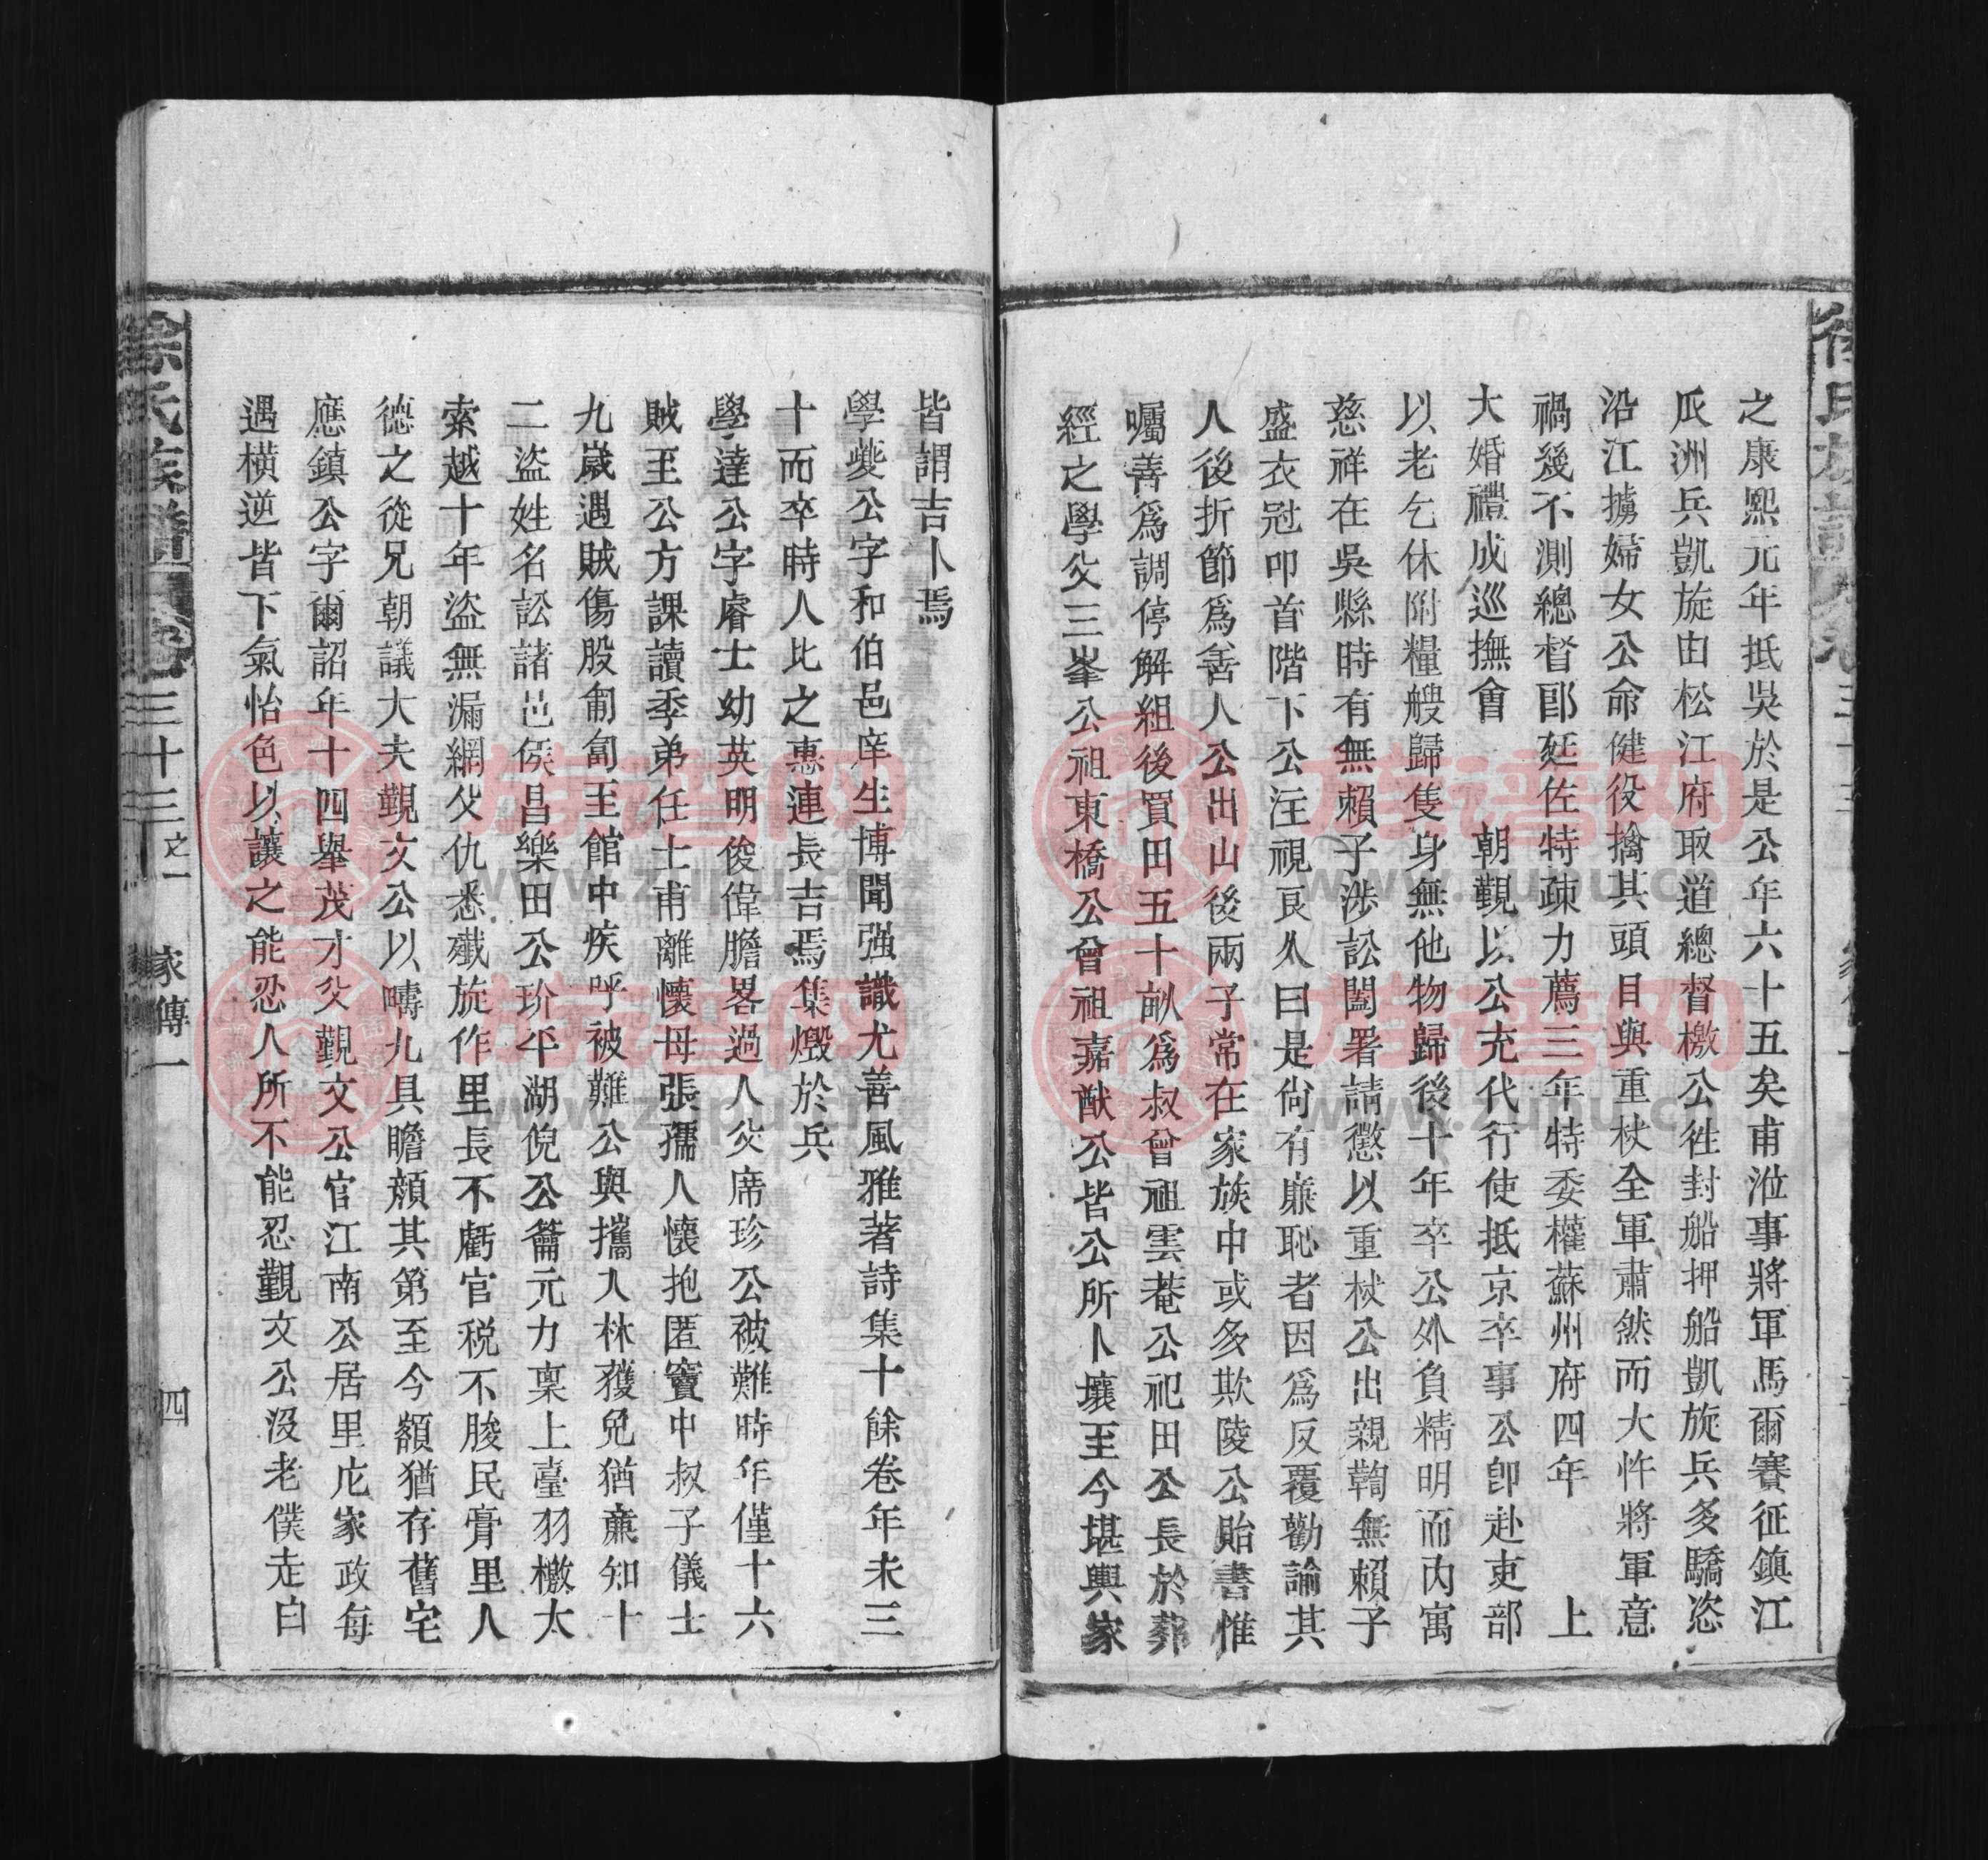 之康熙元年抵吳於是公年六十五矣甫涖事將軍馬爾賽征鎮江
瓜洲兵凱旋由松江府取道總督檄公徃封船押船凱旋兵多驕恣
沿江擄婦女公命健役擒其頭目與重杖全軍肅然而大忤將軍意
禍幾不測總督郎廷佐特疎力薦三年特委權蘇州府四年 上
大婚禮成巡撫會 朝覲以公充代行使抵京卒事公卽赴吏部
以老乞休附糧艘歸隻身無他物歸後十年卒公外負精明而內寓
慈祥在吳縣時有無賴子涉訟闔署請懲以重杖公出親鞫無賴子
盛衣冠叩首階下公注視良久曰是尙有廉恥者因爲反覆勸諭其
人後折節爲善人公出山後兩子常在家族中或多欺陵公貽書惟
囑善爲調停解組後買田五十畝爲叔曾祖雲菴公祀田公長於葬
經之學父三峯公祖東橋公曾祖嘉猷公皆公所卜壤至今堪輿家
皆謂吉卜焉
學夔公字和伯邑庠生博聞强識尤善風雅著詩集十餘卷年未三
十而卒時人比之惠連長吉焉集燬於兵
學達公字睿士幼英明俊偉膽畧過人父席珍公被難時年僅十六
賊至公方課讀季弟任士甫離懷母張孺人懷抱匿竇中叔子儀士
九歲遇賊傷股匍匐至館中疾呼被難公與攜入林獲免猶亷知十
二盜姓名訟諸邑侯昌樂田公玠平湖倪公籥元力稟上臺羽檄大
索越十年盜無漏網父仇悉殲旋作里長不虧官税不朘民膏里人
德之從兄朝議大夫觐文公以疇九具瞻顏其第至今額猶存舊宅
應鎮公字爾詔年十四舉茂才父觐文公官江南公居里庀家政每
遇橫逆皆下氣怡色以讓之能忍人所不能忍觐文公沒老僕走白
徐氏族譜 卷三十三之一 家傳一 四